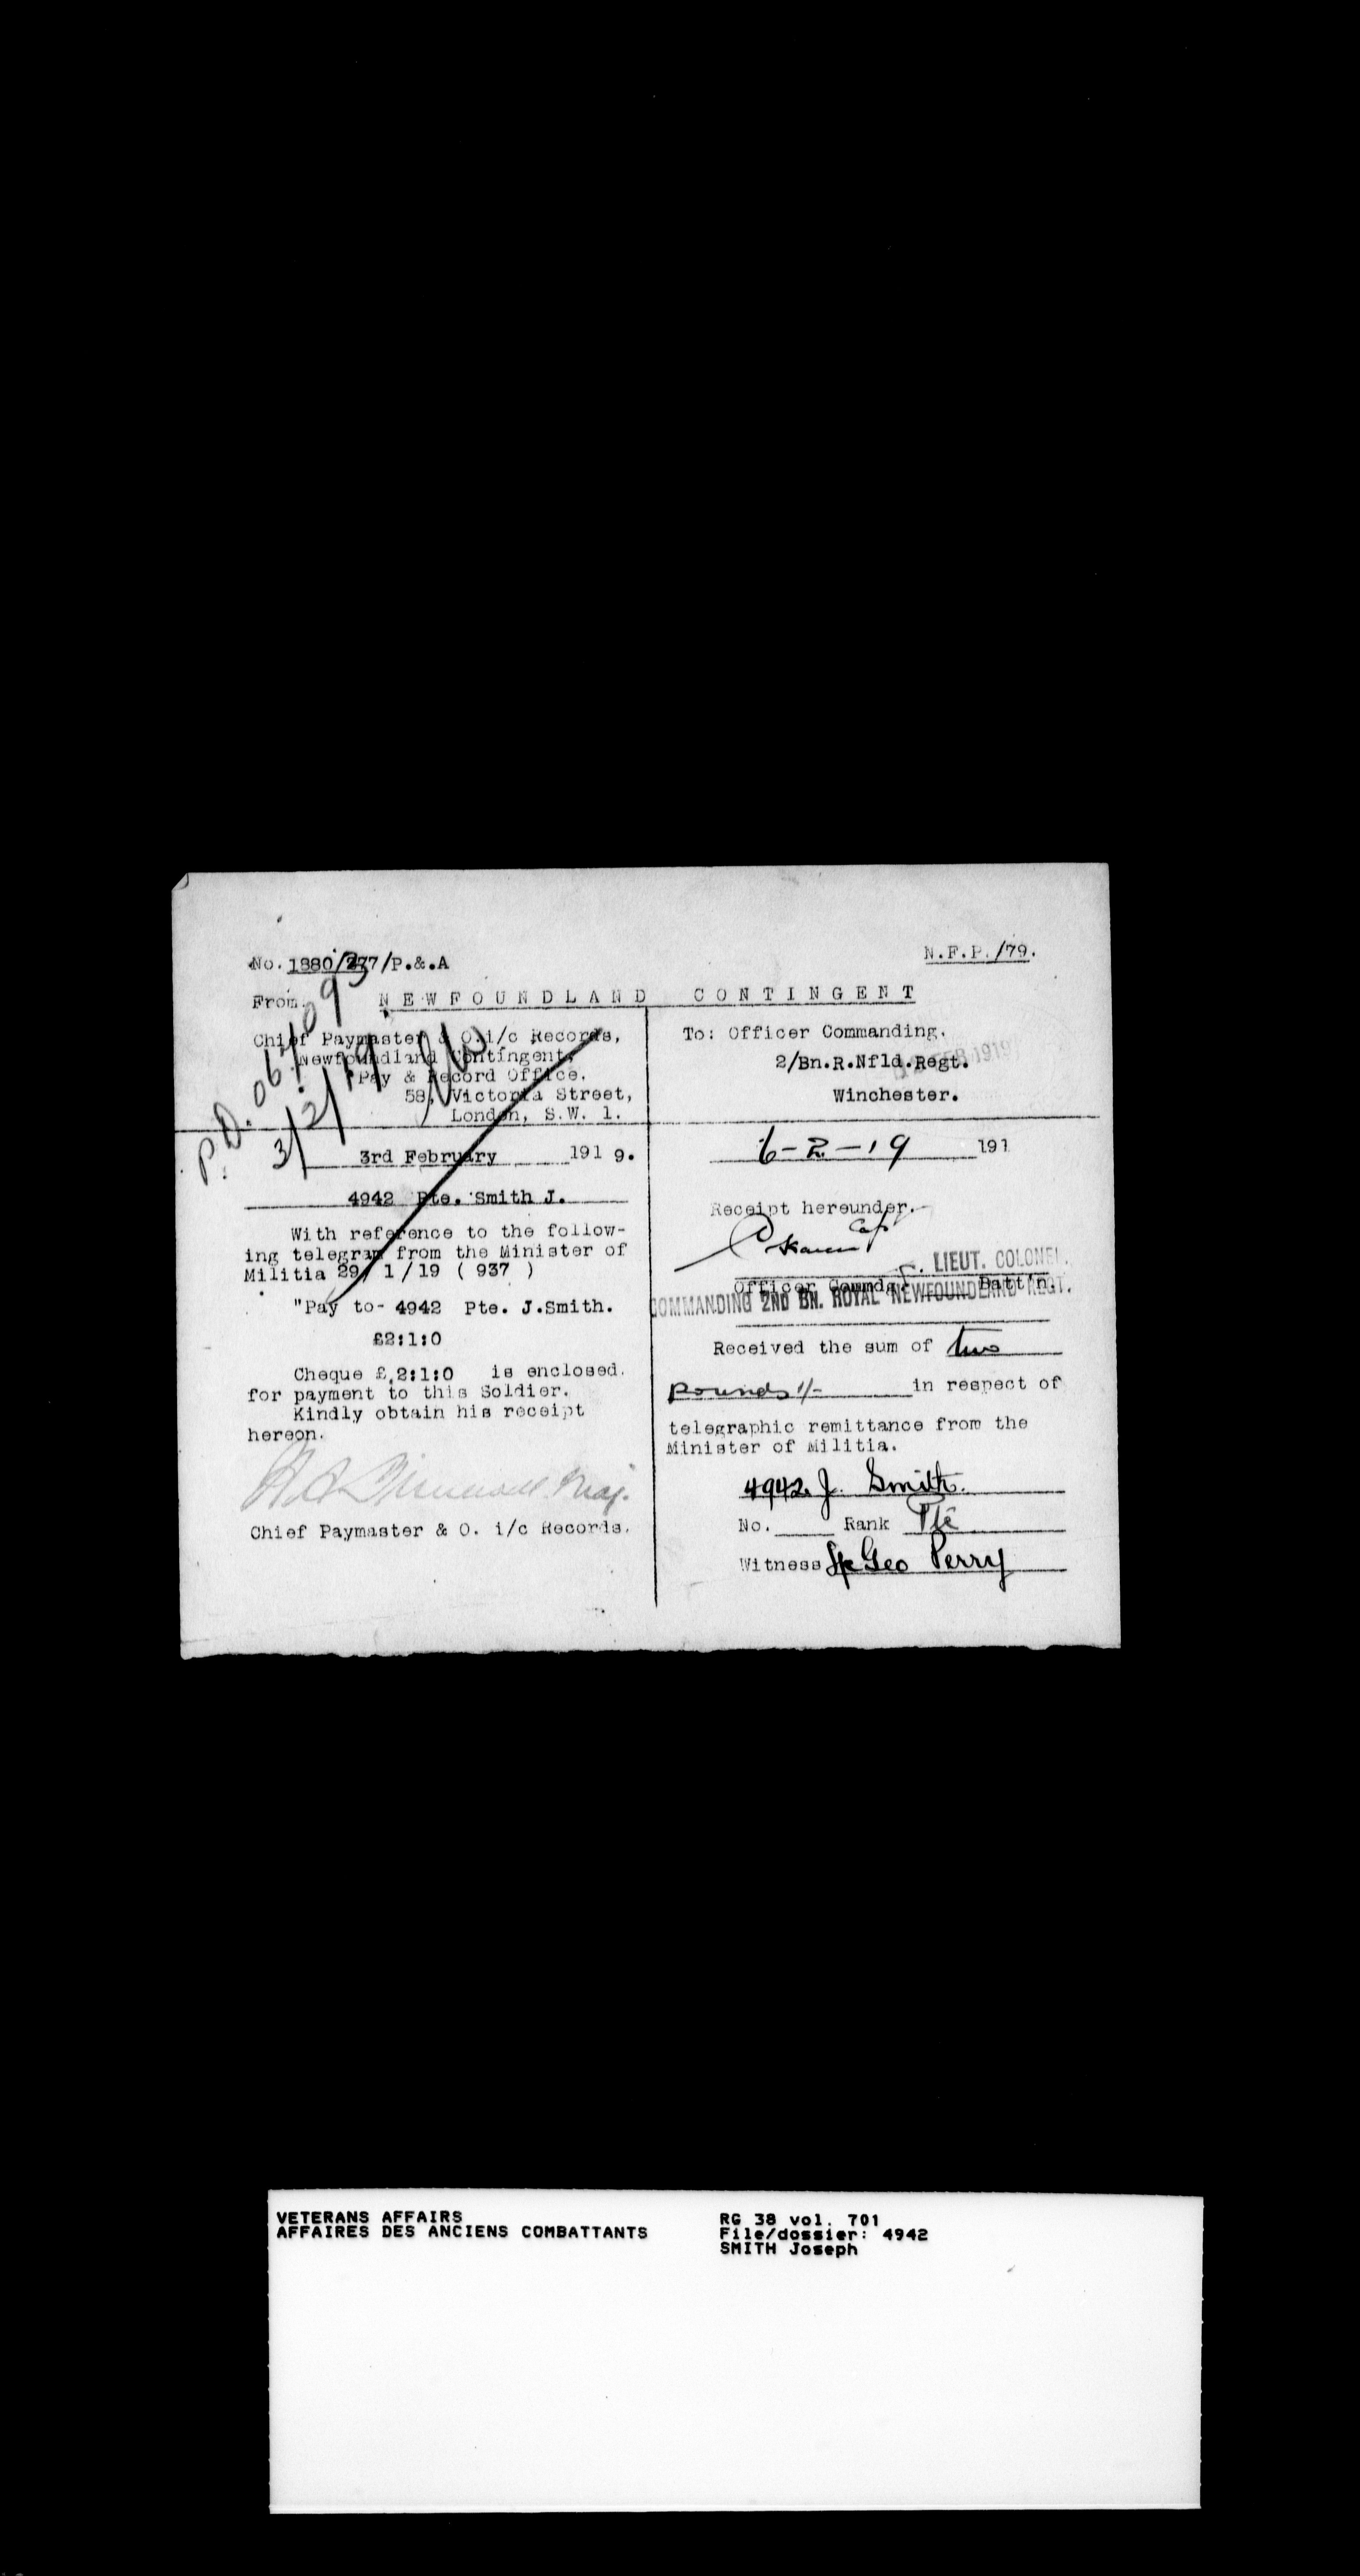 No. 1880/237/P.&.A
N.F.P./79.
From.
NEWFOUNDLAND CONTINGENT
Chief Paymaster & O. i/c Records,
Newfoundland Contingent,
Pay & Record Office.
58, Victoria Street,
London, S.W. 1.
P.D. 067109
3/2/19
3rd February 191 9.
4942 Pte. Smith J.
With reference to the follow-
ing telegram from the Minister of
Militia 29/ 1/19 ( 937 )
"Pay to- 4942 Pte. J.Smith.
£2:1:0
Cheque £ 2:1:0 is enclosed.
for payment to this Soldier.
Kindly obtain his receipt
hereon.
Maj.
Chief Paymaster & O. i/c Records.
To: Officer Commanding.
2/Bn.R.Nfld.Regt.
Winchester.
FEB 1919
6-2-19 191
Receipt hereunder.
Capt
LIEUT. COLONEL.
Officer Commdg. Batt'n.
COMMANDING 2ND BN. ROYAL NEWFOUNDLAND REGT.
Received the sum of two
pounds 1/- in respect of
telegraphic remittance from the
Minister of Militia.
4942 J. Smith.
No. Rank Pte
Witness Geo Perry
VETERANS AFFAIRS
AFFAIRES DES ANCIENS COMBATTANTS
RG 38 vol. 701
File/dossier: 4942
SMITH Joseph